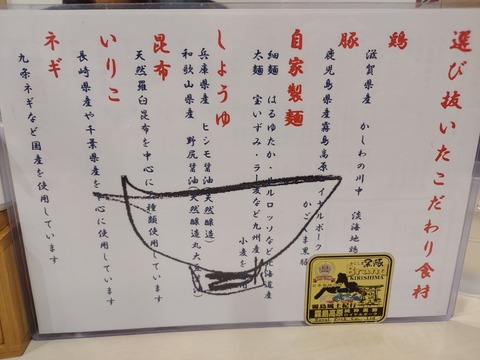 選び抜いたこだわり食材
鶏
滋賀県産 かしわの川中 淡海地鶏
豚
鹿児島県産霧島高原ロイヤルポーク
かごしま黒豚
自家製麺
細麺 はるゆたか・ルルロッソなど北海道産
太麺 宝いずみ・ラー麦など九州産
小麦を
しょうゆ
兵庫県産 ヒシモ醤油(天然醸造)
和歌山県産 野尻醤油(天然醸造丸大豆
昆布
天然羅臼昆布を中心に 種類使用しています
いりこ
長崎県産や千葉県産を中心に使用しています
ネギ
九条ネギなど国産を使用しています
かごしま
黒豚
Brand
KIRISHIMA
霧島高原